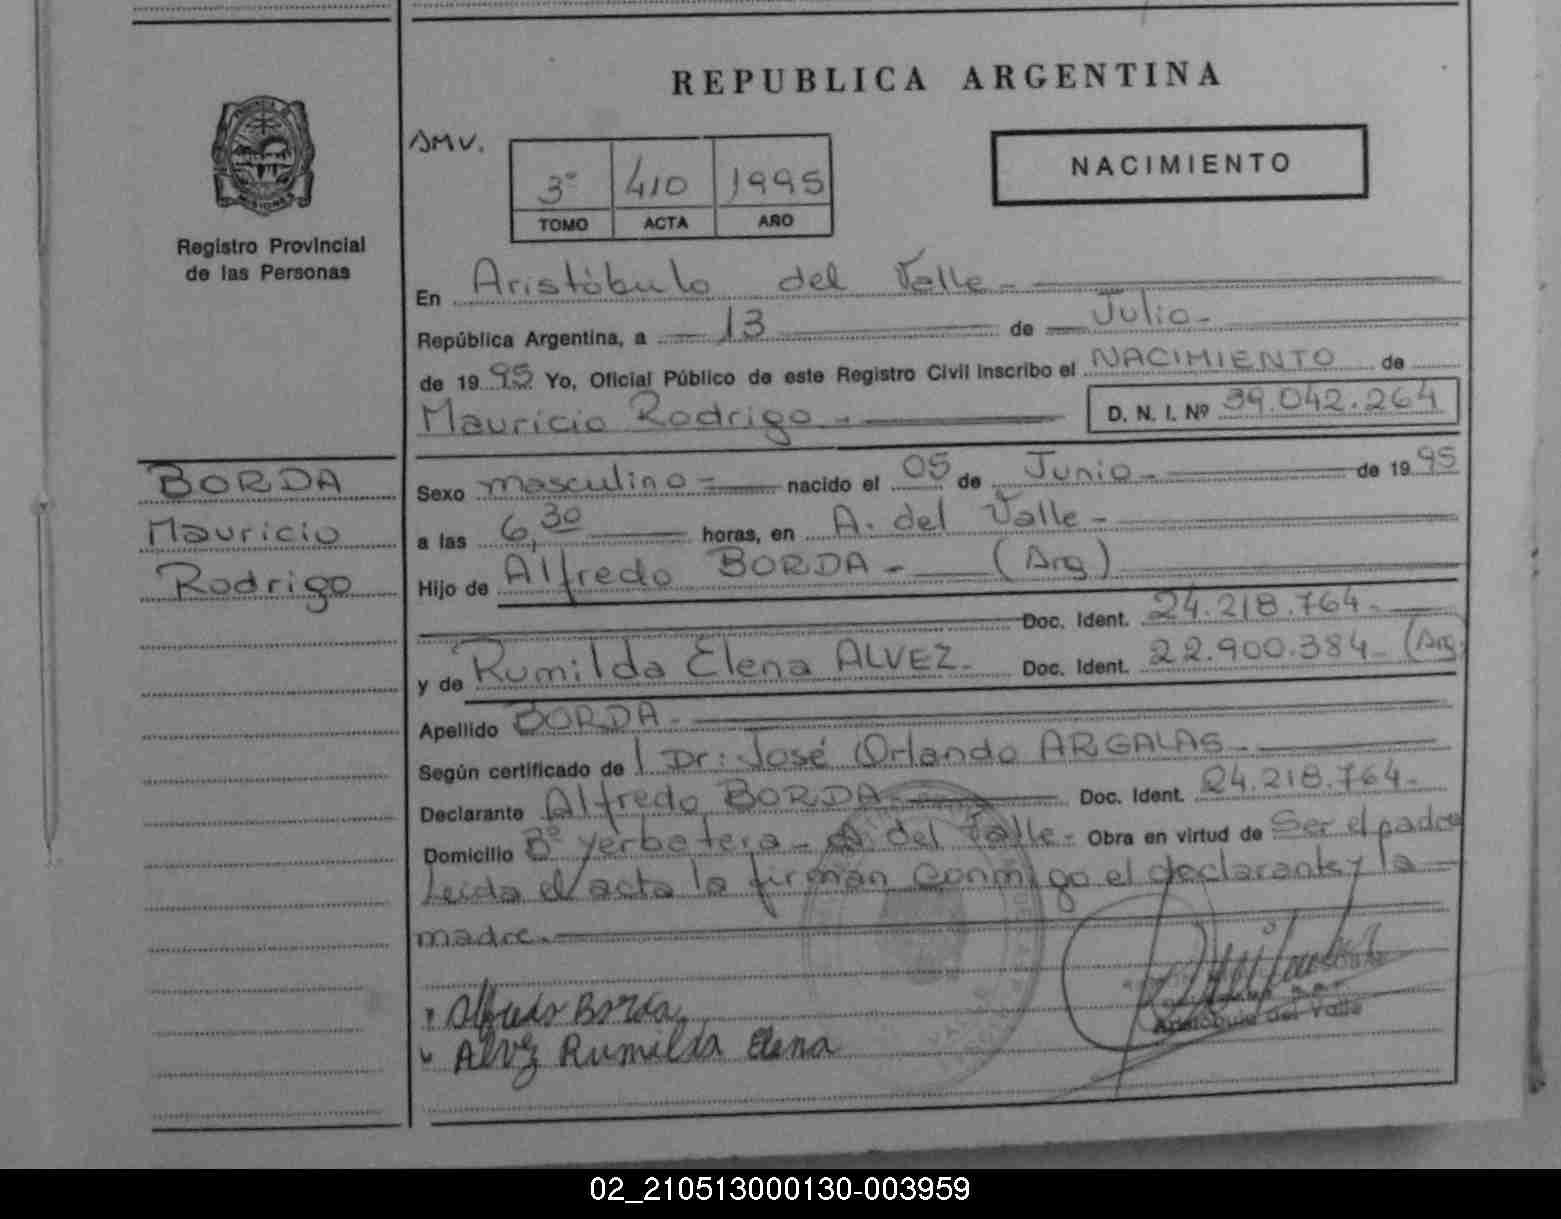 REPUBLICA ARGENTINA
Registro Provincial
de las Personas
SMV.
3º 410 1995
TOMO ACTA AÑO
NACIMIENTO
En Aristóbulo del Valle -
República Argentina, a 13 de Julio -
de 19 95 Yo, Oficial Público de este Registro Civil inscribo el NACIMIENTO de
Mauricio Rodrigo - D. N. I. Nº 39.042.264
BORDA
Mauricio
Rodrigo
Sexo masculino - nacido el 05 de Junio - de 19 95
a las 6,30 horas, en A. del Valle -
Hijo de Alfredo BORDA - (Arg)
Doc. Ident. 24.218.764 -
y de Rumilda Elena ALVEZ - Doc. Ident. 22.900.384 - (Arg)
Apellido BORDA -
Según certificado de Dr: José Orlando ARGALAS -
Declarante Alfredo BORDA - Doc. Ident. 24.218.764 -
Domicilio Bº yerbatera - A. del Valle - Obra en virtud de Ser el padre
Leída el acta la firman conmigo el declarante y la
madre. -
Alfredo Borda
Alvez Rumilda Elena
Aristóbulo del Valle
02_210513000130-003959